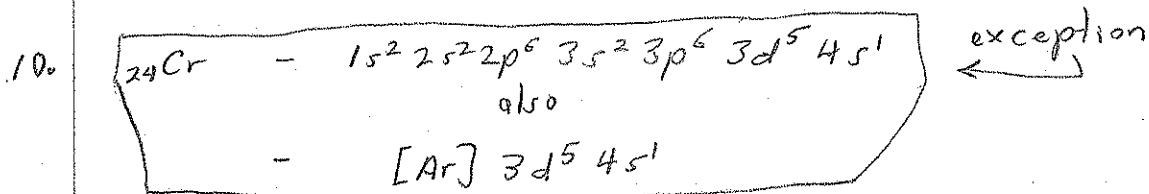 10. ₂₄Cr - 1s² 2s² 2p⁶ 3s² 3p⁶ 3d⁵ 4s¹ exception
also
- [Ar] 3d⁵ 4s¹